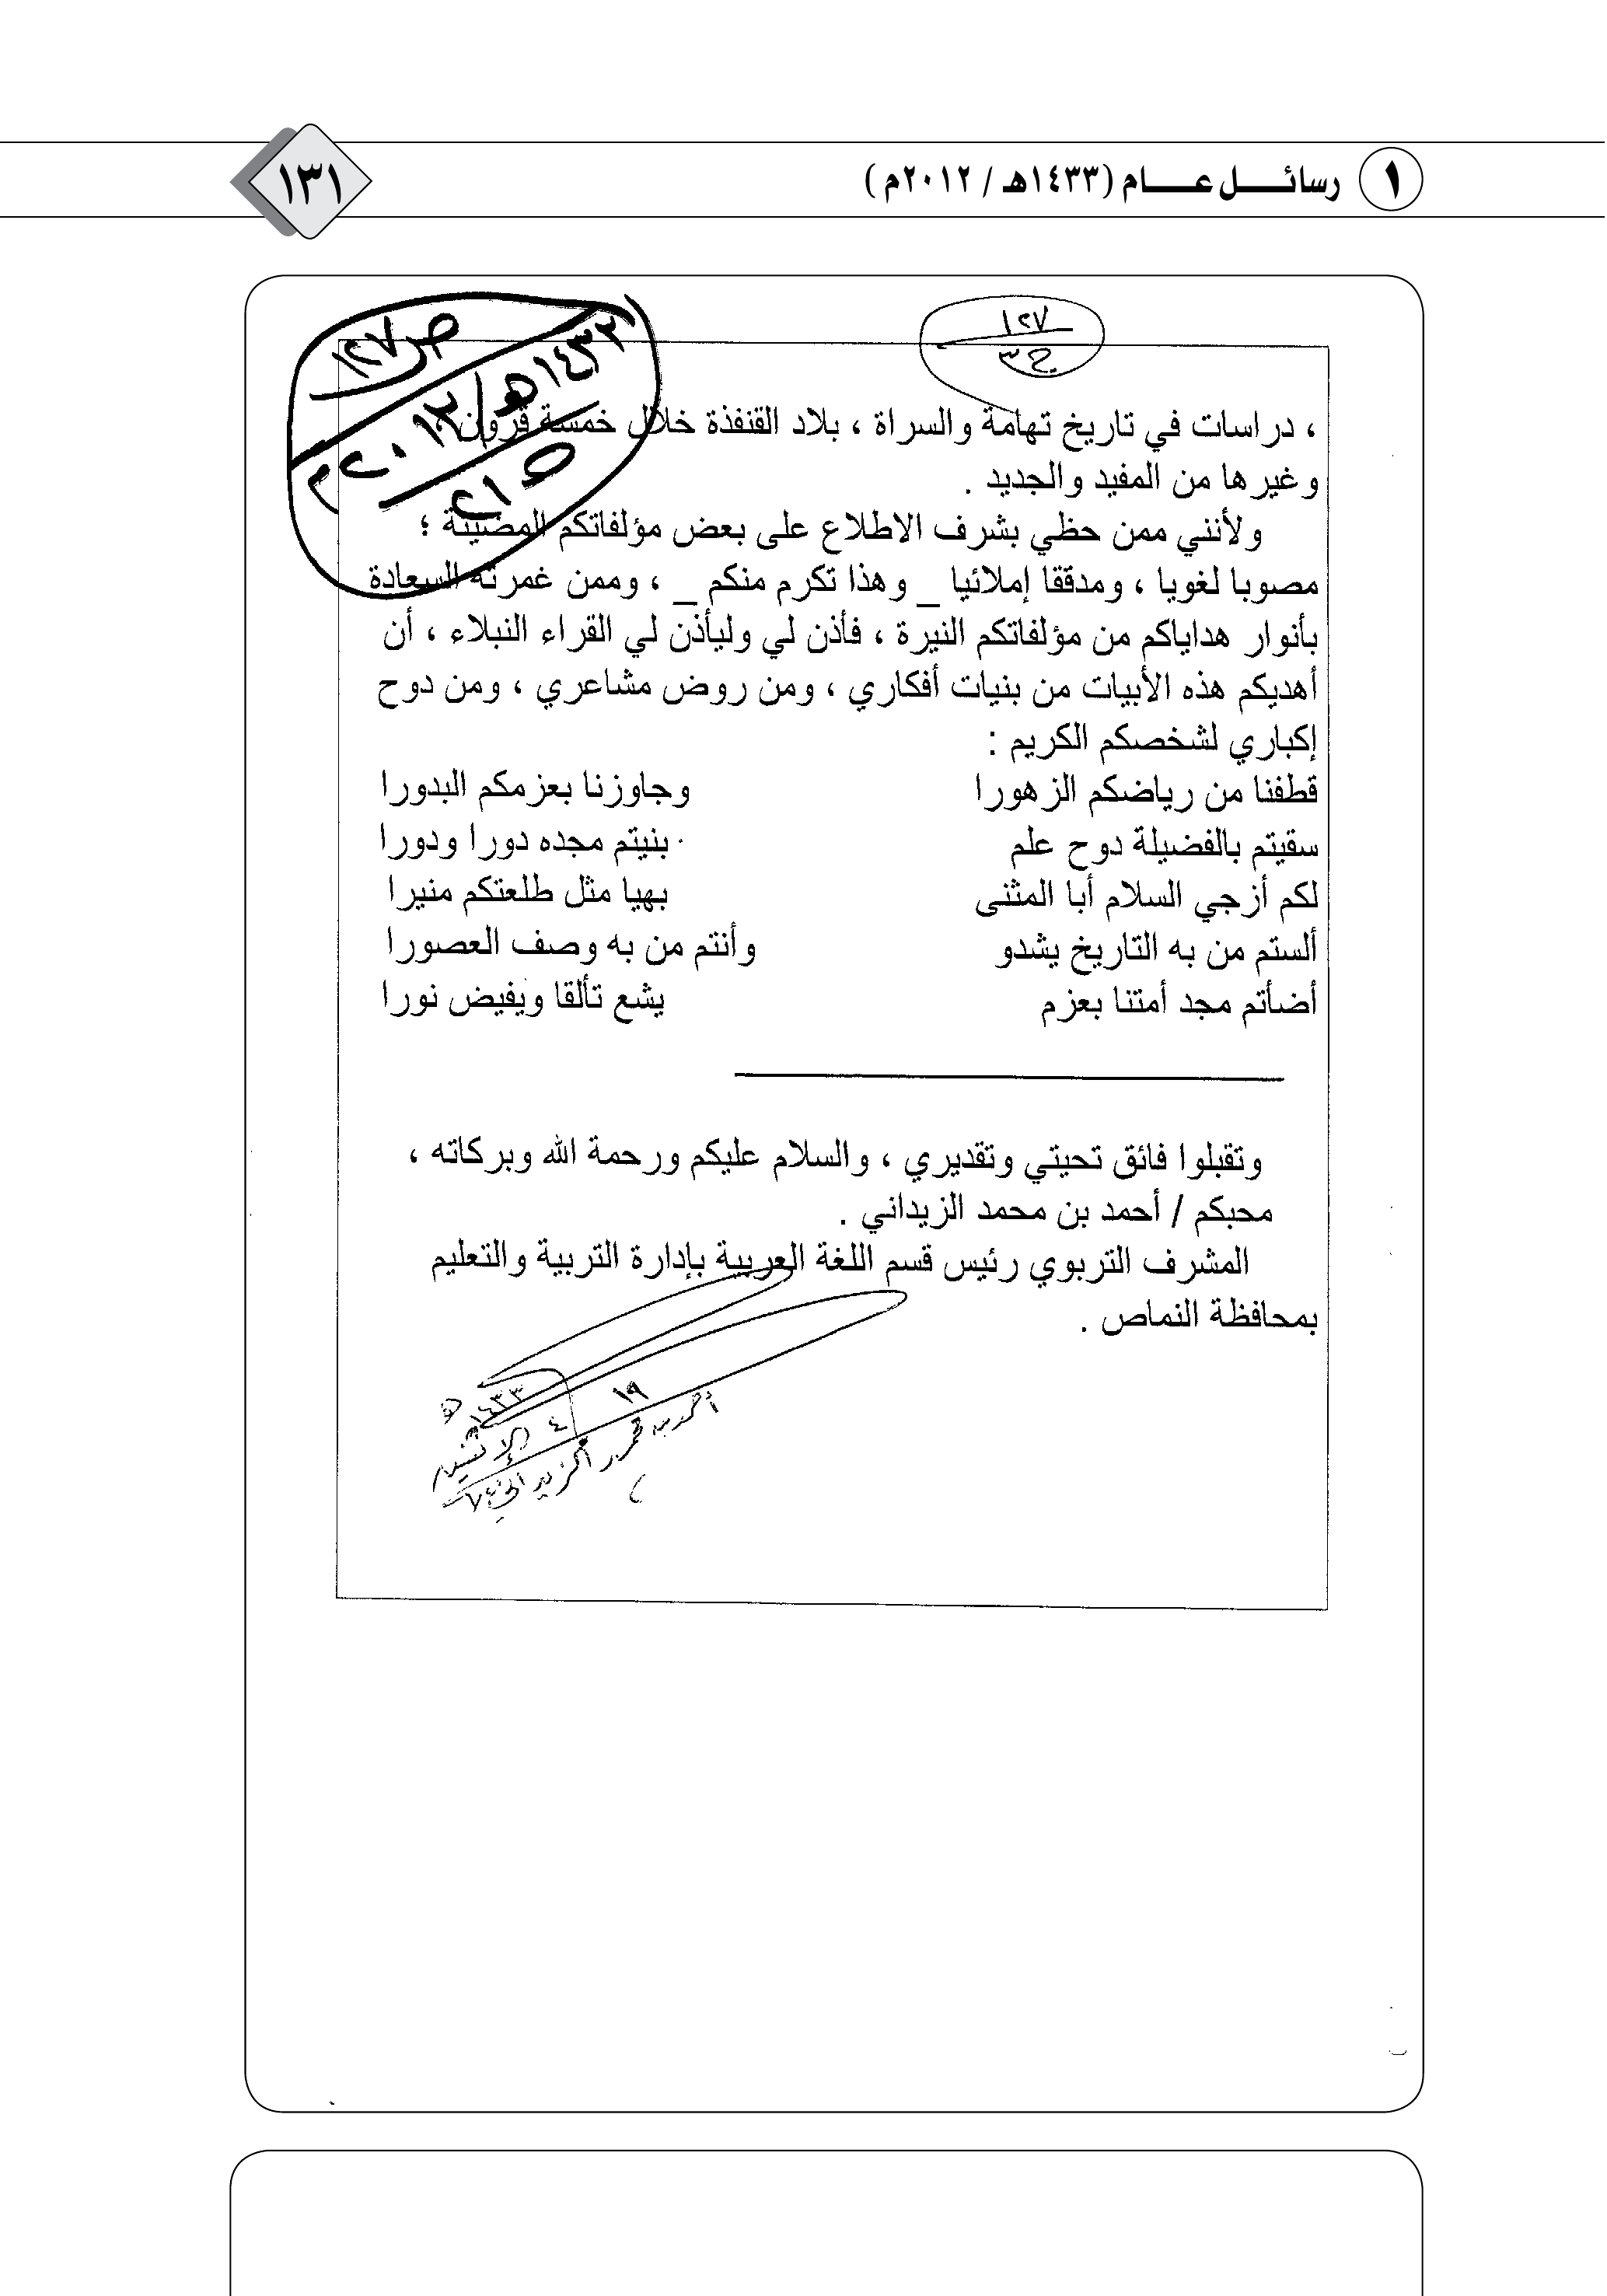 ١ رسائــــل عــــام (١٤٣٣هـ / ٢٠١٢م)
١٣١
١٢٧
ج٣
ص١٢٧
١٤٣٣هـ/٢٠١٢م
، دراسات في تاريخ تهامة والسراة ، بلاد القنفذة خلال خمسة قرون
وغيرها من المفيد والجديد .
ولأنني ممن حظي بشرف الاطلاع على بعض مؤلفاتكم المضيئة ؛
مصوبا لغويا ، ومدققا إملائيا _ وهذا تكرم منكم _ ، وممن غمرته السعادة
بأنوار هداياكم من مؤلفاتكم النيرة ، فأذن لي وليأذن لي القراء النبلاء ، أن
أهديكم هذه الأبيات من بنيات أفكاري ، ومن روض مشاعري ، ومن دوح
إكباري لشخصكم الكريم :
قطفنا من رياضكم الزهورا وجاوزنا بعزمكم البدورا
سقيتم بالفضيلة دوح علم بنيتم مجده دورا ودورا
لكم أزجي السلام أبا المثنى بهيا مثل طلعتكم منيرا
ألستم من به التاريخ يشدو وأنتم من به وصف العصورا
أضأتم مجد أمتنا بعزم يشع تألقا ويفيض نورا
وتقبلوا فائق تحيتي وتقديري ، والسلام عليكم ورحمة الله وبركاته ،
محبكم / أحمد بن محمد الزيداني .
المشرف التربوي رئيس قسم اللغة العربية بإدارة التربية والتعليم
بمحافظة النماص .
١٩ ٤ ١٤٣٣ هـ
الإثنين
أحمد بن محمد الزيداني